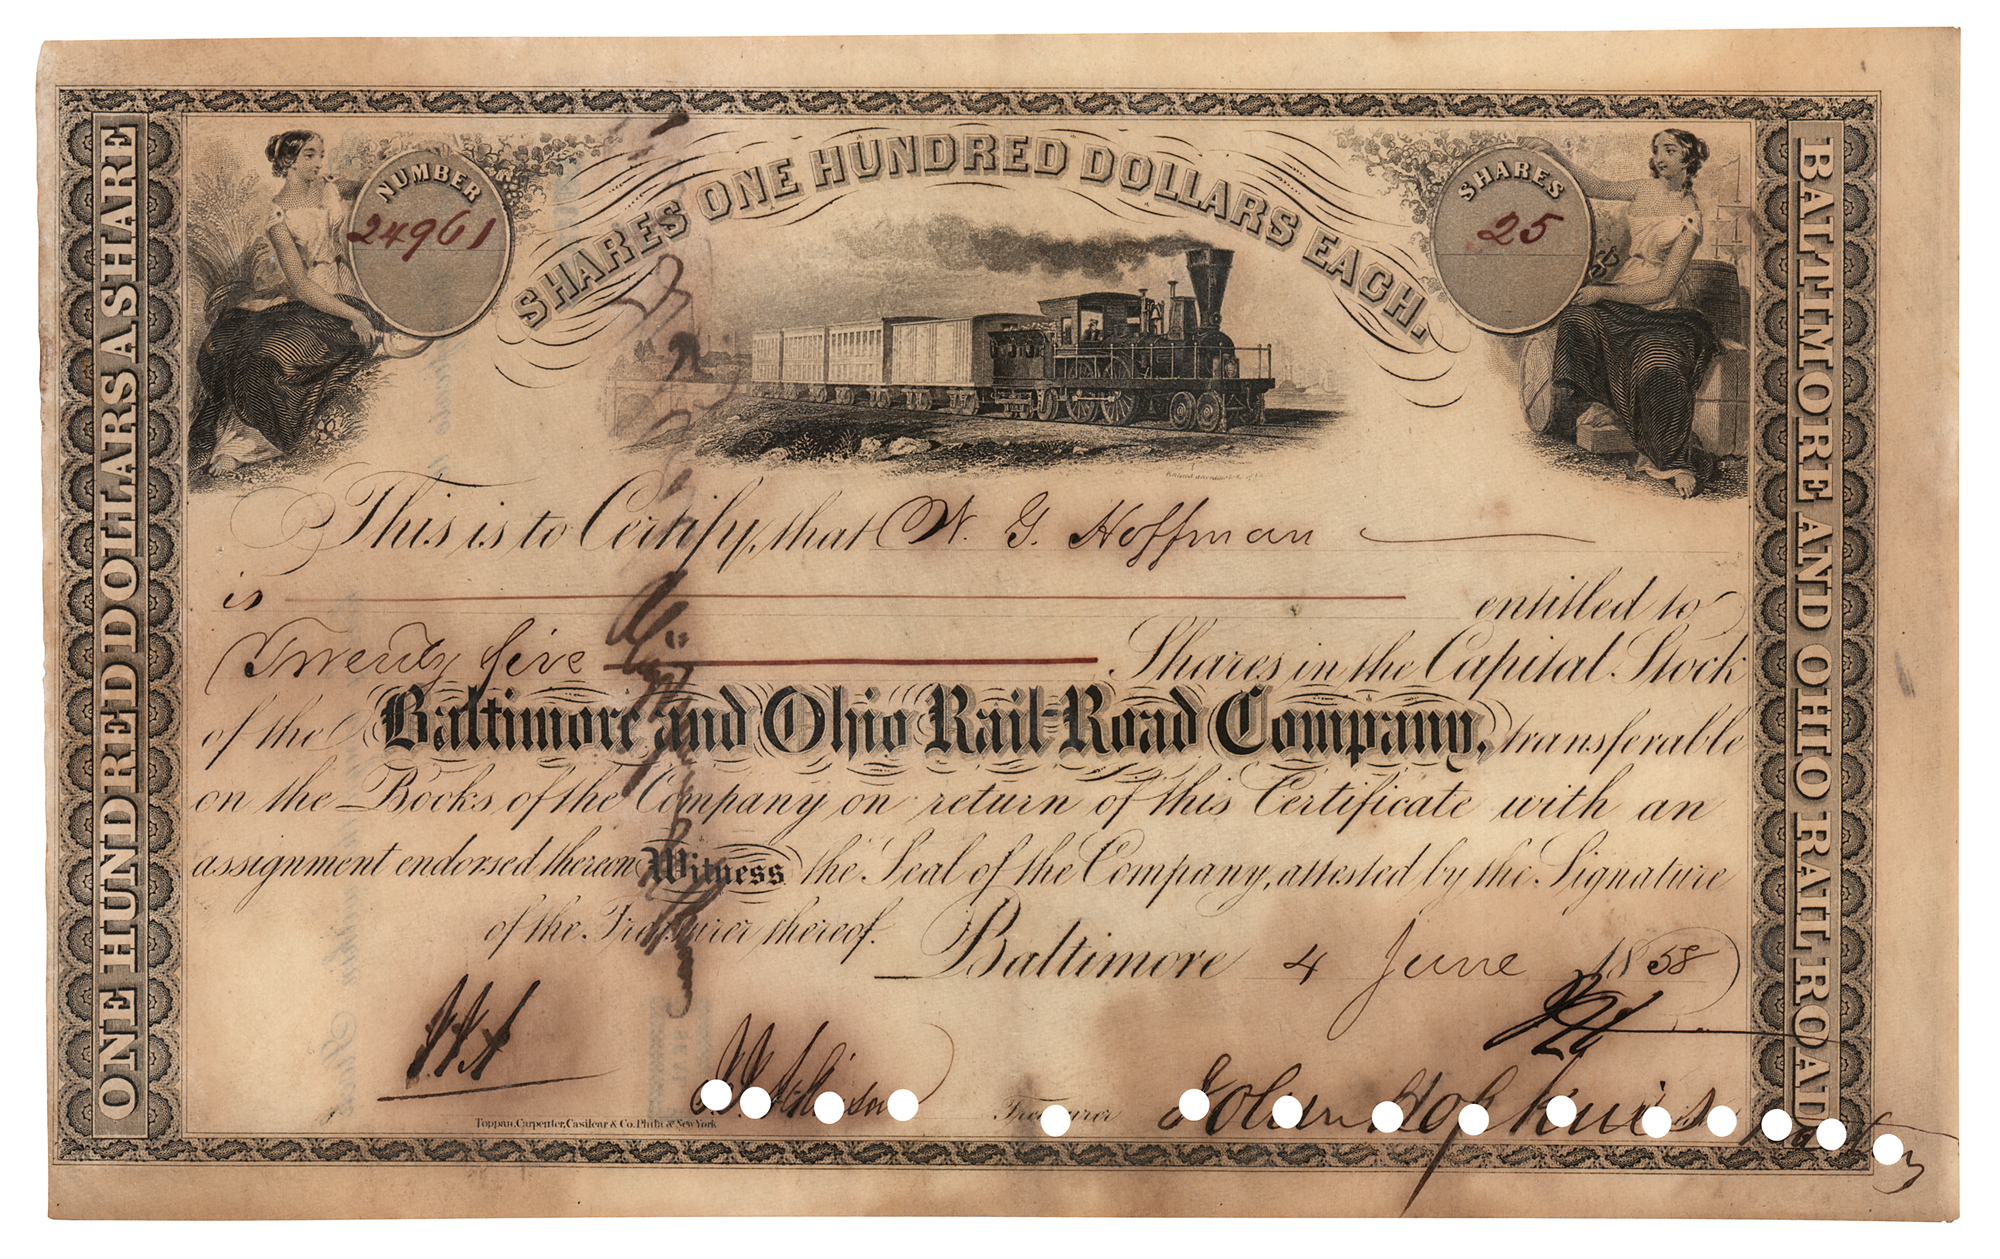 NUMBER
24961
SHARES ONE HUNDRED DOLLARS EACH.
SHARES
25
ONE HUNDRED DOLLARS A SHARE
BALTIMORE AND OHIO RAIL ROAD
This is to Certify, that W. G. Hoffman
is entitled to
Twenty five Shares in the Capital Stock
of the Baltimore and Ohio Rail-Road Company, transferable
on the Books of the Company on return of this Certificate with an
assignment endorsed thereon Witness the Seal of the Company, attested by the Signature
of the Treasurer thereof.
Baltimore 4 June 1858
Treasurer
John Hopkins
Toppan, Carpenter, Casilear & Co. Phila. & New York